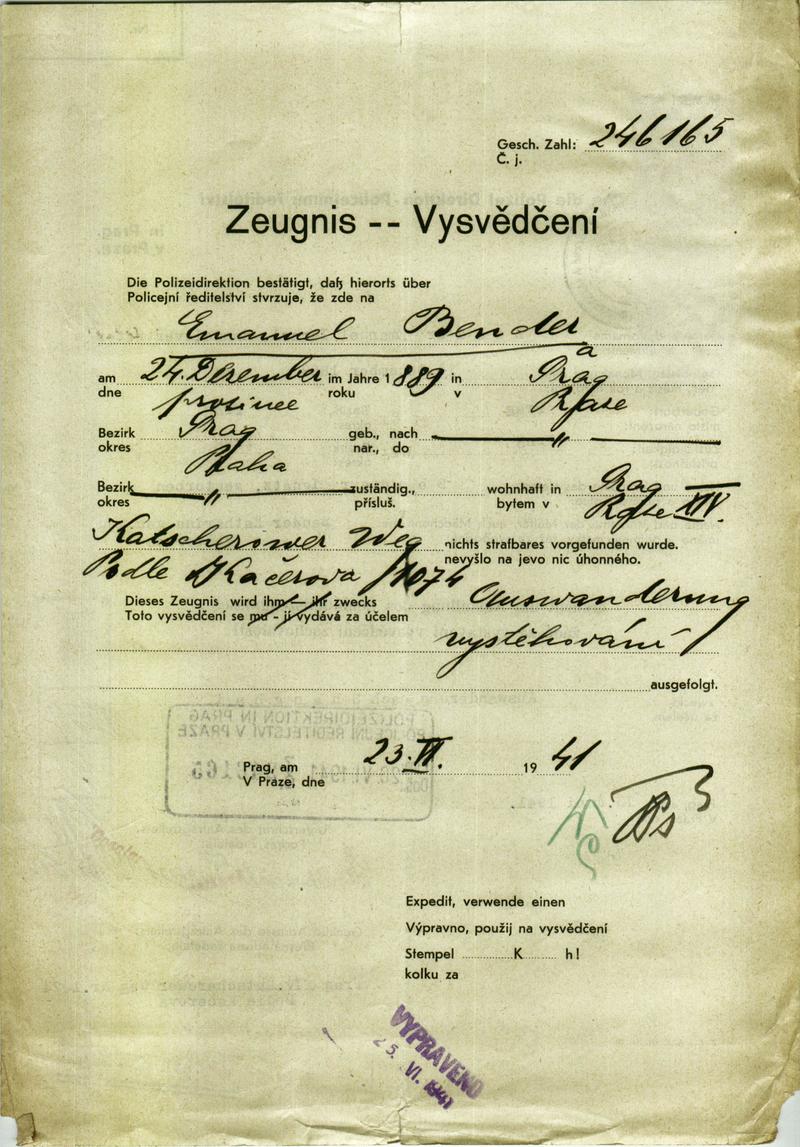 Gesch. Zahl: 246165
Č. j.
Zeugnis -- Vysvědčení
Die Polizeidirektion bestätigt, daß hierorts über
Policejní ředitelství stvrzuje, že zde na
Emanuel Bender
am 24. Dezember im Jahre 1889 in Prag
dne prosince roku v Praze
Bezirk Prag geb., nach — " —
okres Praha nar., do
Bezirk — " — zuständig., wohnhaft in Prag
okres přísluš. bytem v Praze XIV.
Katscherower Weg nichts strafbares vorgefunden wurde.
Podle Kačerova /1074 nevyšlo na jevo nic úhonného.
Dieses Zeugnis wird ihm — ihr zwecks Auswanderung
Toto vysvědčení se mu - jí vydává za účelem
vystěhování
ausgefolgt.
POLIZEIDIREKTION IN PRAG
ŘEDITELSTVÍ V PRAZE
Prag, am 23. VI. 19 41
V Praze, dne
Expedit, verwende einen
Výpravno, použij na vysvědčení
Stempel K h!
kolku za
VYPRAVENO
25. VI. 1941